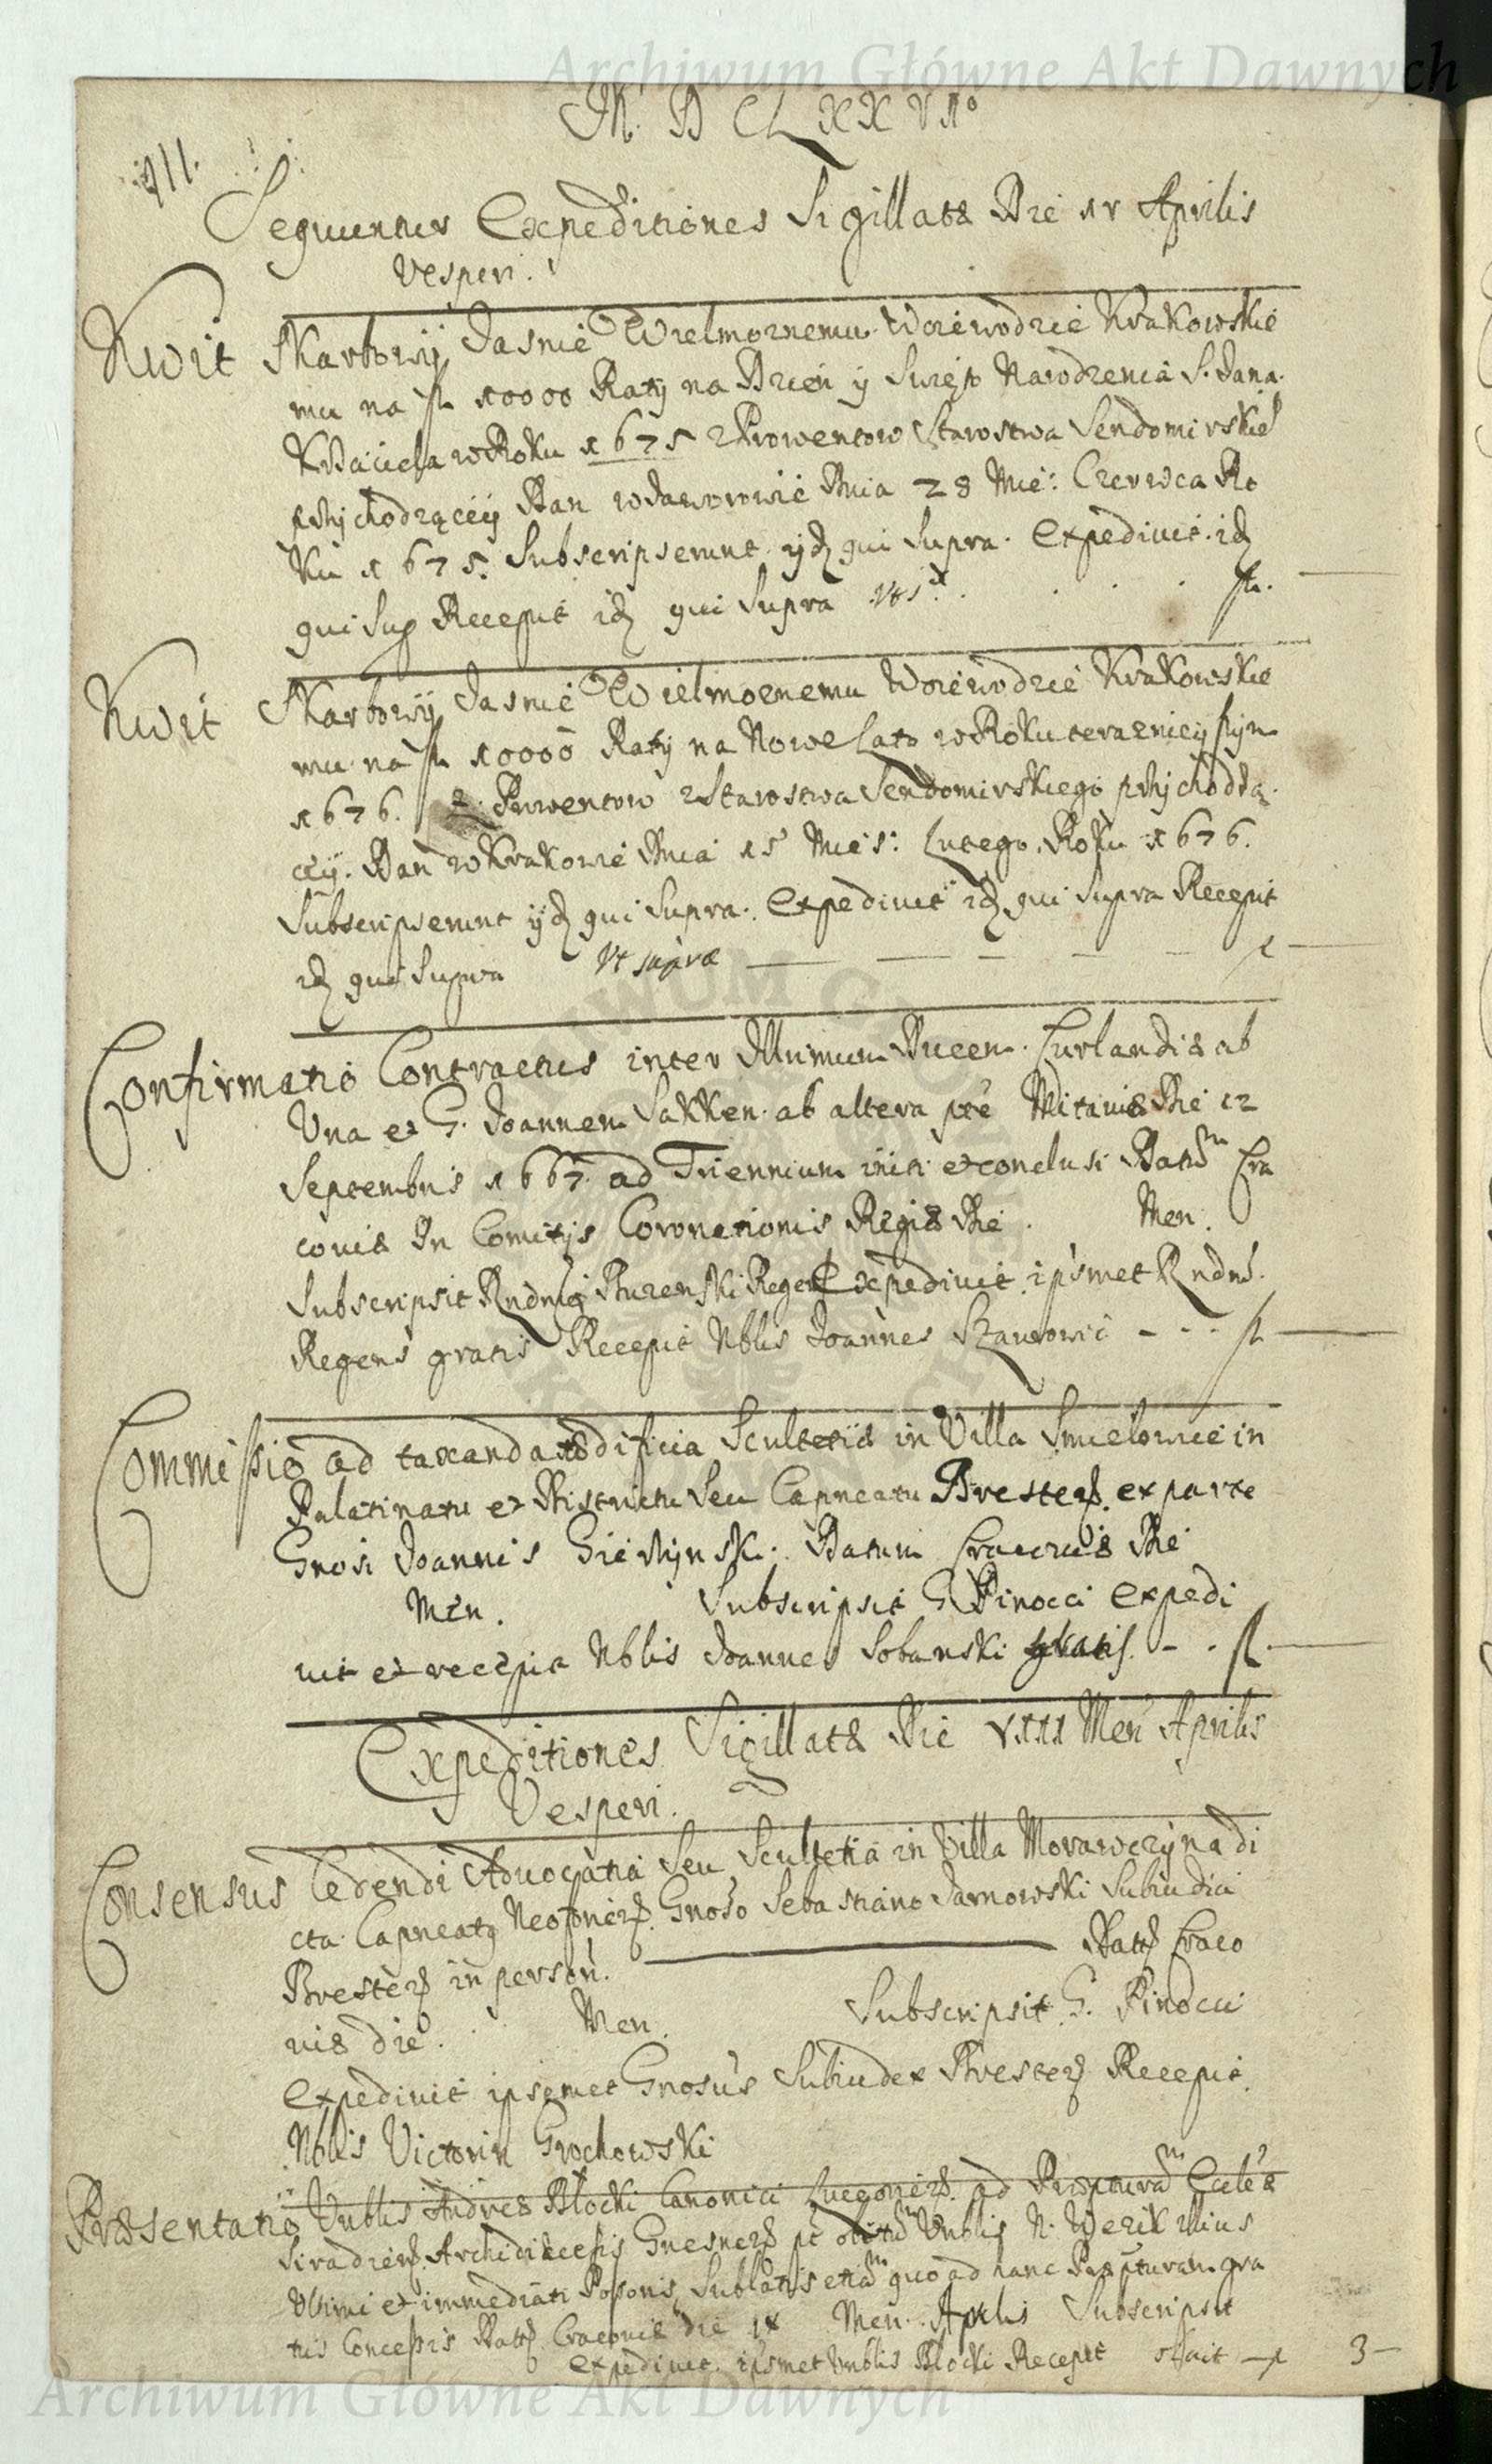 Archiwum Główne Akt Dawnych
M. D C L X X V I°
111.
Sequuntur Expeditiones Sigillatæ Die 1V Aprilis
Vesperi.
Kwit Skarbowÿ Jasnie Wielmoznemu Woiewodzie Krakowskie
mu na fl 10000 Ratÿ na Dzień ÿ Swięto Narodzenia S. Jana
Krzciciela w Roku 1675 z Prowentow Starostwa Sendomirskieo
przÿchodzącéÿ Dan w Jaworowie Dnia 28 Mie: Czerwca Ro
ku 1675. Subscripserunt ÿdē qui Supra. Expedivit idē
qui Sup Recepit idē qui Supra Vts. fl.
Kwit Skarbowÿ Jasnie Wielmoznemu Woiewodzie Krakowskie
mu na fl 10000 Ratÿ na Nowe Lato w Roku terazniejszÿm
1676. z Prowentow Starostwa Sendomirskiego przÿchodzą
céÿ. Dan w Krakowie Dnia 15 Mies: Lutego. Roku 1676.
Subscripserunt ÿdē qui Supra. Expedivit idē qui Supra Recepit
idē qui Supra Vt supra
Confirmatio Contractus inter Illrimum Ducem Curlandiæ ab
Una et G. Joannem Sakken ab altera pte Mitaviæ Die 12
Septembris 1667 ad Triennium initi et conclusi Datum Cra
coviæ In Comitÿs Coronationis Regiæ Die . Men.
Subscripsit Rndmus Buzenski Regens Expedivit ipsmet Rndms.
Regens gratis Recepit Nblis Joannes Szaurowic - - - fl
Commissio ad taxanda ædificia Scultetiæ in Villa Smielowice in
Palatinatu et Districtu Seu Capneatu Brestens. ex parte
Gnosi Joannis Gierzÿnski. Datum Cracoviæ Die
Men. Subscripsit G. Pinocci Expedi
vit et recepit Nblis Joannes Sobanski gratis. - - fl
Expeditiones Sigillatæ Die VIII Men Aprilis
Vesperi.
Consensus Cedendi Advocatia Seu Scultetia in Villa Morawczÿna di
cta Capneatus Neoforiens. Gnoso Sebastiano Jarnowski Subiudici
Brestens in person. Datt Craco
viæ die . Men. Subscripsit G. Pinocci
Expedivit ipsemet Gnosus Subiudex Brestens Recepit
Nblis Victorin Grochowski
Præsentatio Vnblis Andreæ Błocki Canonici ad Præpturam Ecclæ
Siradiens. Archidiæcesis Gnesnens pt obitum Vnblis N. Werik illius
Vltimi et immediati Possoris Sublatis etiam quo ad hanc Præpturam gra
tiis Concessis Datt Cracoviæ die IX Men. Aprlis Subscripsit
Expedivit ipsmet Vnblis Błocki Recepit 3 -
Archiwum Główne Akt Dawnych